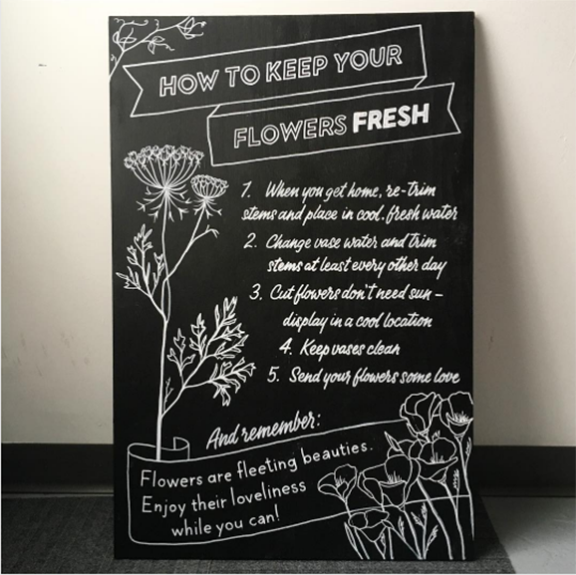 HOW TO KEEP YOUR
FLOWERS FRESH
1. When you get home, re-trim
stems and place in cool, fresh water
2. Change vase water and trim
stems at least every other day
3. Cut flowers don't need sun -
display in a cool location
4. Keep vases clean
5. Send your flowers some love
And remember:
Flowers are fleeting beauties.
Enjoy their loveliness
while you can!